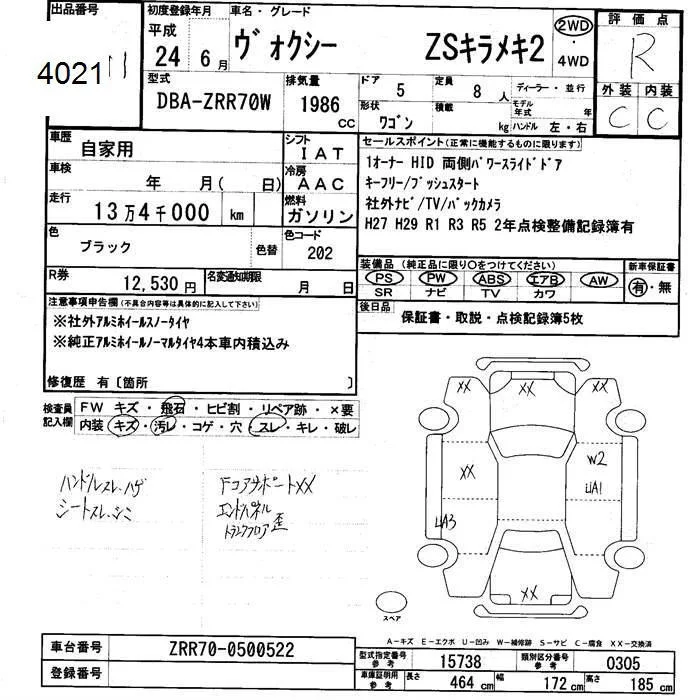 出品番号
4021
初度登録年月
平成
24 6月
車名・グレード
ヴォクシー ZSキラメキ2
2WD
・
4WD
評価点
R
外装 内装
C C
型式
DBA-ZRR70W
排気量
1986
CC
ドア 5
定員 8人
ディーラー・並行
形状 ワゴン
積載 kg
モデル年式 年
ハンドル 左・右
車歴 自家用
シフト IAT
車検 年 月( 日)
冷房 AAC
走行 13万4千000 km
燃料 ガソリン
色 ブラック 色替
色コード 202
R券 12,530円
名変通知期限 月 日
セールスポイント(正常に機能するものに限ります)
1オーナー HID 両側パワースライドドア
キーフリー/プッシュスタート
社外ナビ/TV/バックカメラ
H27 H29 R1 R3 R5 2年点検整備記録簿有
装備品(純正品に限り〇をつけてください)
PS PW ABS エアB AW
SR ナビ TV カワ
新車保証書
有・無
後日品
保証書・取説・点検記録簿5枚
注意事項申告欄(不具合内容等は具体的に記入して下さい)
※社外アルミホイールスノータイヤ
※純正アルミホイールノーマルタイヤ4本車内積込み
修復歴 有〔箇所 〕
検査員記入欄
FW キズ・飛石・ヒビ割・リペア跡・×要
内装 キズ・汚レ・コゲ・穴・スレ・キレ・破レ
ハンドルスレ、ハゲ
シートスレ、シミ
FコアサポートXX
エンドパネル
トランクフロア 歪
XX XX XX
XX W2
UA1
UA3
XX
スペア
A-キズ E-エクボ U-凹み W-補修跡 S-サビ C-腐食 XX-交換済
車台番号 ZRR70-0500522
登録番号
型式指定番号 参考 15738
類別区分番号 参考 0305
車庫証明用 参考 長さ 464 cm 幅 172 cm 高さ 185 cm